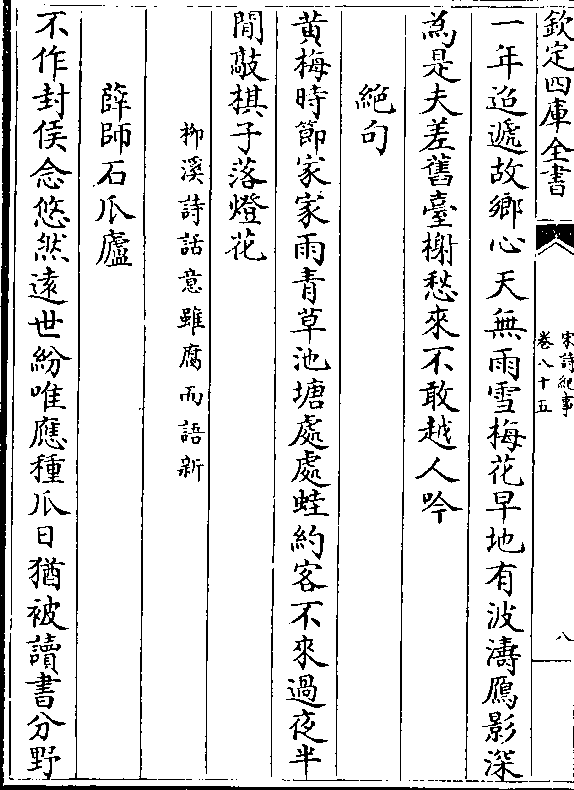 欽定四庫全書
宋詩紀事
卷八十五
八
一年迢遞故鄉心天無雨雪梅花早地有波濤鴈影深
為是夫差舊臺榭愁來不敢越人吟
絶句
黄梅時節家家雨青草池塘處處蛙約客不來過夜半
閒敲棋子落燈花
柳溪詩話意雖腐而語新
薛師石瓜廬
不作封侯念悠然逺世紛唯應種瓜日猶被讀書分野